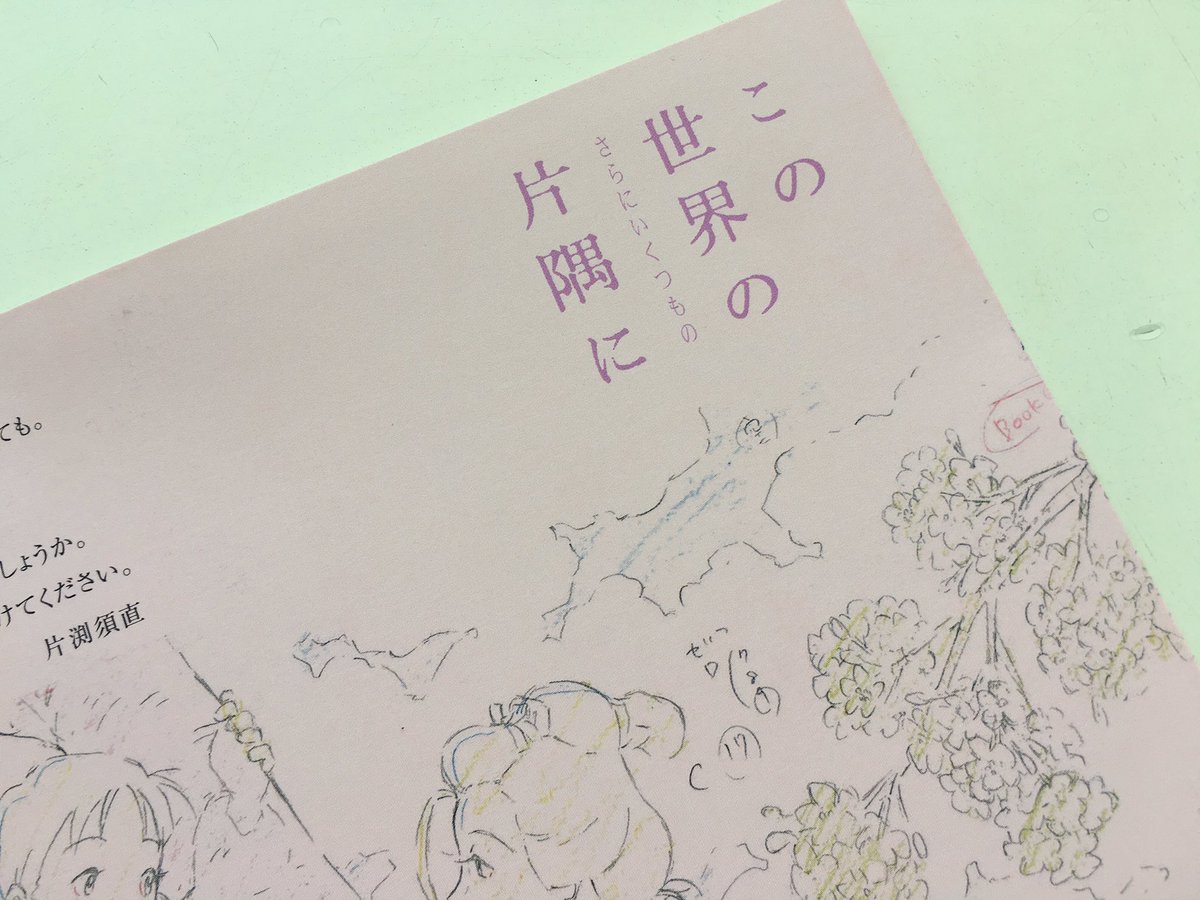 この
世界の
さらにいくつもの
片隅に
ても。
しょうか。
けてください。
片渕須直
Book
空